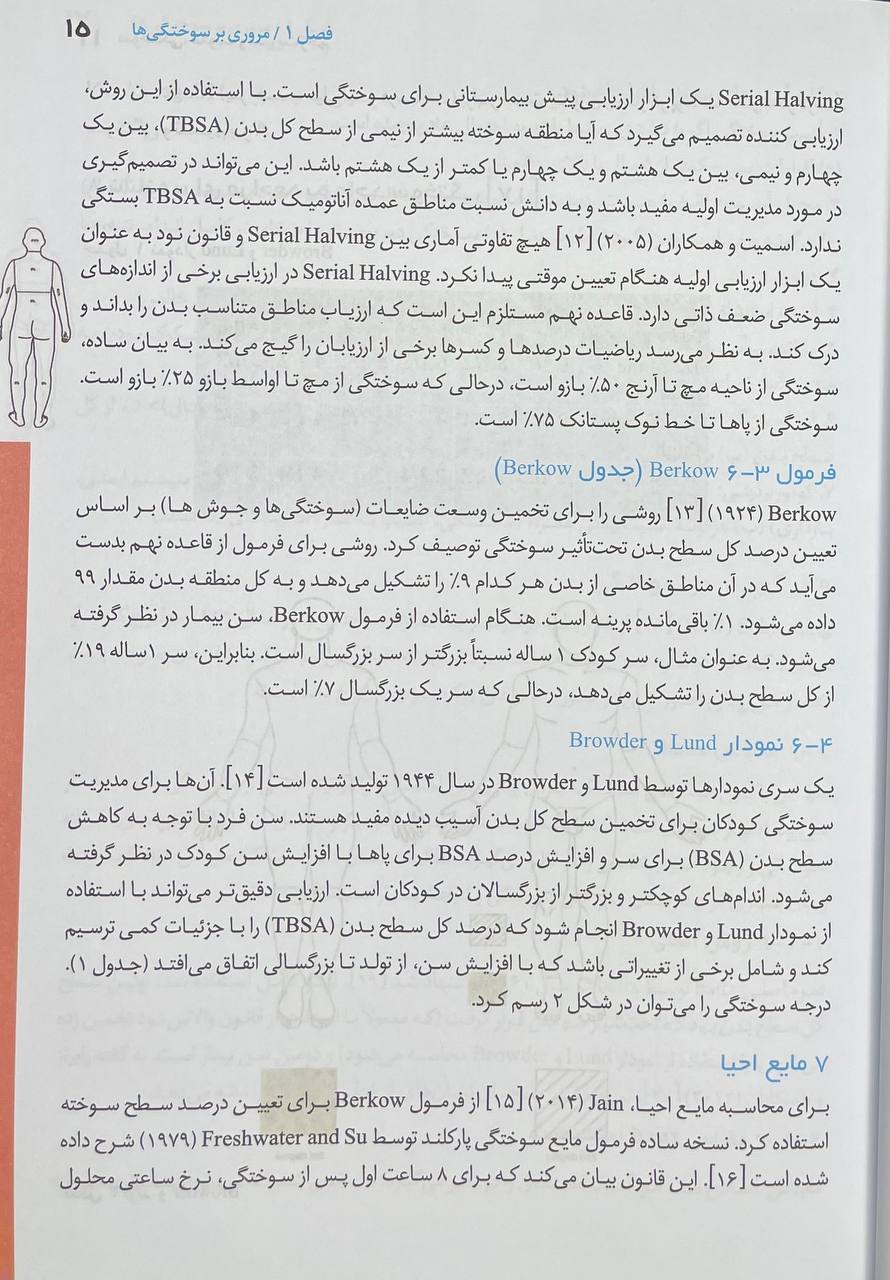 فصل ۱ / مروری بر سوختگی‌ها
۱۵
Serial Halving یک ابزار ارزیابی پیش بیمارستانی برای سوختگی است. با استفاده از این روش،
ارزیابی کننده تصمیم می‌گیرد که آیا منطقه سوخته بیشتر از نیمی از سطح کل بدن (TBSA)، بین یک
چهارم و نیمی، بین یک هشتم و یک چهارم یا کمتر از یک هشتم باشد. این می‌تواند در تصمیم‌گیری
در مورد مدیریت اولیه مفید باشد و به دانش نسبت مناطق عمده آناتومیک نسبت به TBSA بستگی
ندارد. اسمیت و همکاران (۲۰۰۵) [۱۲] هیچ تفاوتی آماری بین Serial Halving و قانون نود به عنوان
یک ابزار ارزیابی اولیه هنگام تعیین موقتی پیدا نکرد. Serial Halving در ارزیابی برخی از اندازه‌های
سوختگی ضعف ذاتی دارد. قاعده نهم مستلزم این است که ارزیاب مناطق متناسب بدن را بداند و
درک کند. به نظر می‌رسد ریاضیات درصدها و کسرها برخی از ارزیابان را گیج می‌کند. به بیان ساده،
سوختگی از ناحیه مچ تا آرنج ۵۰٪ بازو است، درحالی که سوختگی از مچ تا اواسط بازو ۲۵٪ بازو است.
سوختگی از پاها تا خط نوک پستانک ۷۵٪ است.
فرمول ۳-۶ Berkow (جدول Berkow)
Berkow (۱۹۲۴) [۱۳] روشی را برای تخمین وسعت ضایعات (سوختگی‌ها و جوش ها) بر اساس
تعیین درصد کل سطح بدن تحت‌تأثیر سوختگی توصیف کرد. روشی برای فرمول از قاعده نهم بدست
می‌آید که در آن مناطق خاصی از بدن هر کدام ۹٪ را تشکیل می‌دهد و به کل منطقه بدن مقدار ۹۹
داده می‌شود. ۱٪ باقی‌مانده پرینه است. هنگام استفاده از فرمول Berkow، سن بیمار در نظر گرفته
می‌شود. به عنوان مثال، سر کودک ۱ ساله نسبتاً بزرگتر از سر بزرگسال است. بنابراین، سر ۱ساله ۱۹٪
از کل سطح بدن را تشکیل می‌دهد، درحالی که سر یک بزرگسال ۷٪ است.
۶-۴ نمودار Lund و Browder
یک سری نمودارها توسط Lund و Browder در سال ۱۹۴۴ تولید شده است [۱۴]. آن‌ها برای مدیریت
سوختگی کودکان برای تخمین سطح کل بدن آسیب دیده مفید هستند. سن فرد با توجه به کاهش
سطح بدن (BSA) برای سر و افزایش درصد BSA برای پاها با افزایش سن کودک در نظر گرفته
می‌شود. اندام‌های کوچکتر و بزرگتر از بزرگسالان در کودکان است. ارزیابی دقیق‌تر می‌تواند با استفاده
از نمودار Lund و Browder انجام شود که درصد کل سطح بدن (TBSA) را با جزئیات کمی ترسیم
کند و شامل برخی از تغییراتی باشد که با افزایش سن، از تولد تا بزرگسالی اتفاق می‌افتد (جدول ۱).
درجه سوختگی را می‌توان در شکل ۲ رسم کرد.
۷ مایع احیا
برای محاسبه مایع احیا، Jain (۲۰۱۴) [۱۵] از فرمول Berkow برای تعیین درصد سطح سوخته
استفاده کرد. نسخه ساده فرمول مایع سوختگی پارکلند توسط Freshwater and Su (۱۹۷۹) شرح داده
شده است [۱۶]. این قانون بیان می‌کند که برای ۸ ساعت اول پس از سوختگی، نرخ ساعتی محلول